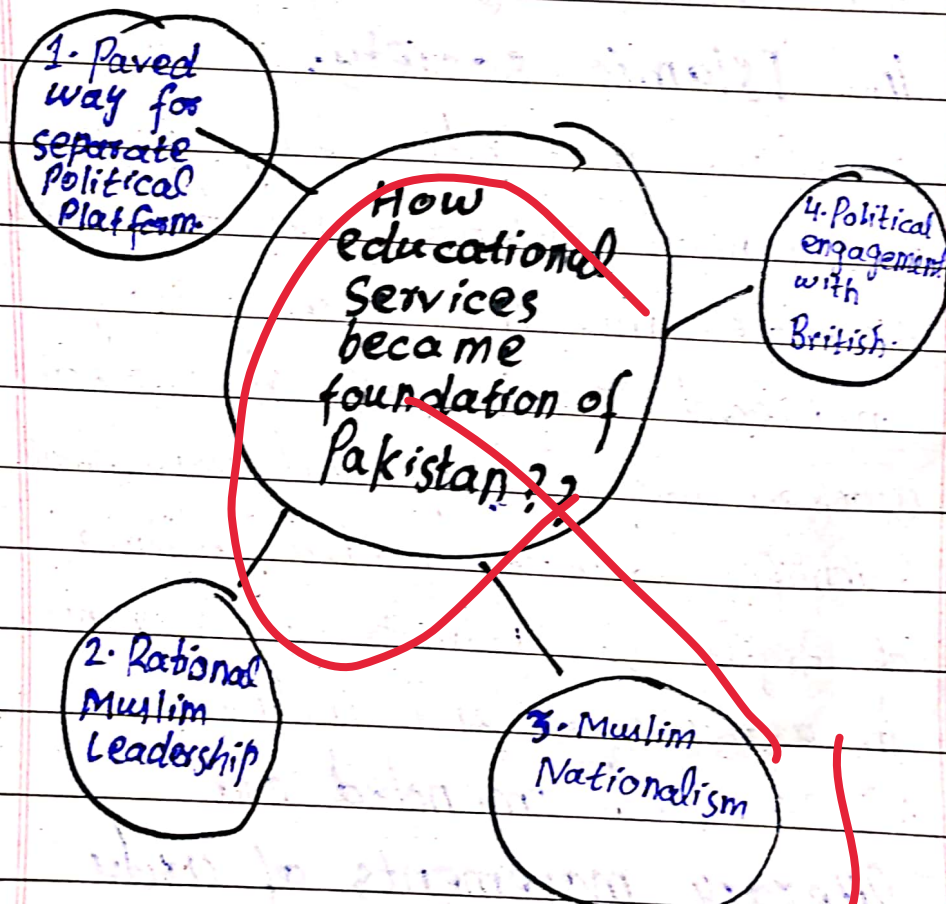 1. Paved
way for
separate
Political
Platform.
How
educational
Services
became
foundation of
Pakistan??
4. Political
engagement
with
British.
2. Rational
Muslim
Leadership
3. Muslim
Nationalism